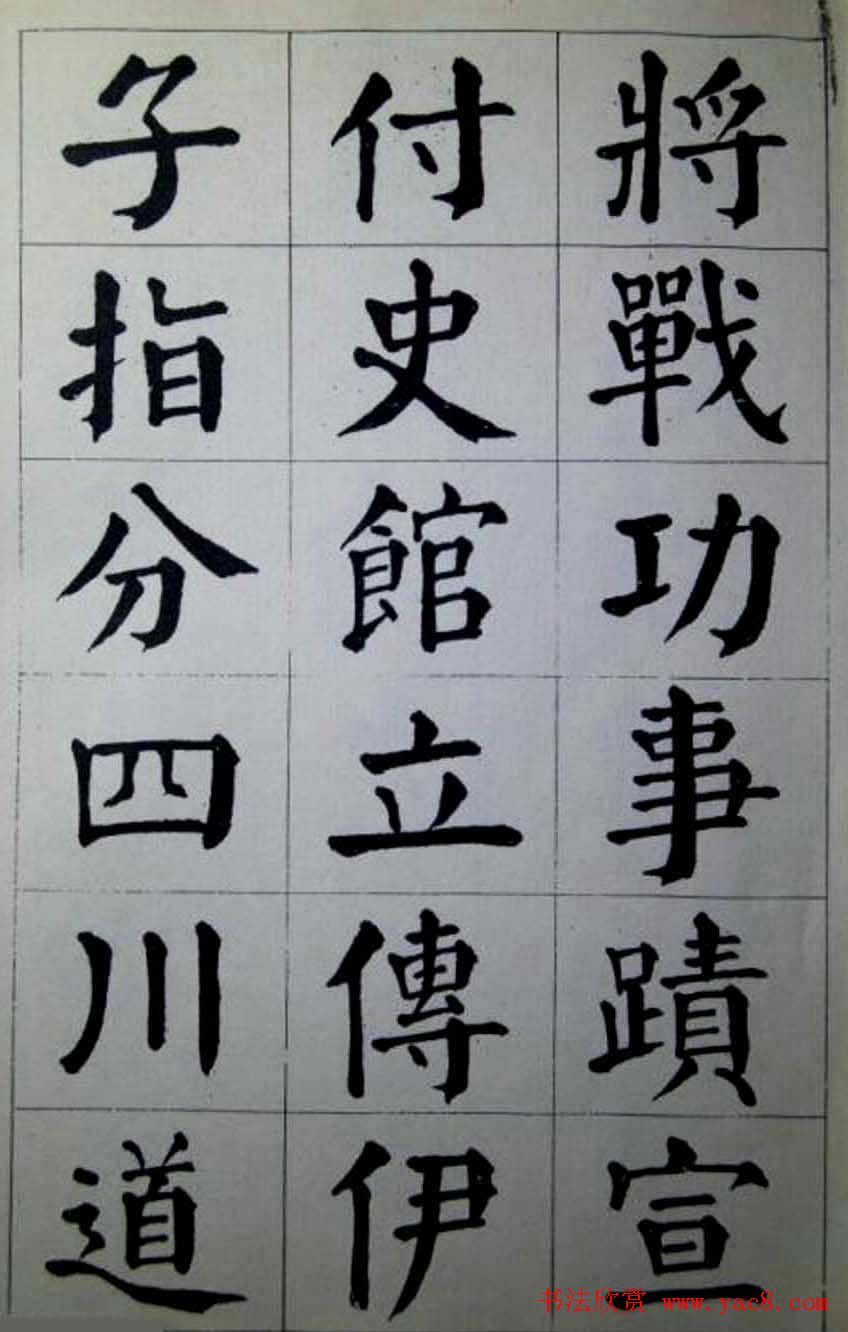 將戰功事蹟宣
付史館立傳伊
子指分四川道
书法欣赏 www.yac8.com